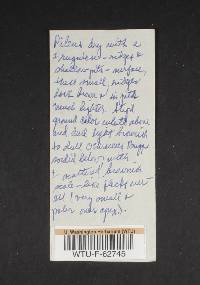 Pileus dry with a
rugulose - ridges &
shallow pits - surface,
these small, ridges
dark brown & in pits
much lighter. Stipe
ground color whitish above
and dark light brownish
to dull
below with
+ matted brownish
scale-like flecks over
all (very small &
paler near apex).
U. Washington Herbarium (WTU)
WTU-F-62745